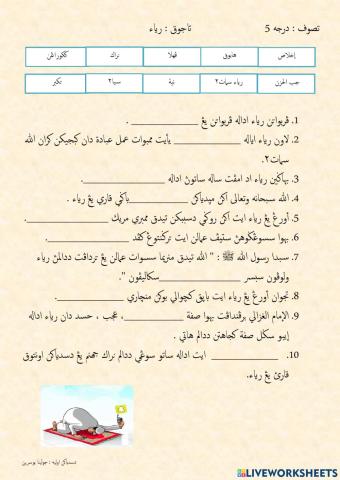 تصوف : درجه 5
تاجوق : رياء
إخلاص
هانوق
ڤهلا
نراك
ككورانن
جب الحزن
رياء سمات٢
نية
سسيا٢
تكبر
1. ڤربواتن رياء اداله ڤربواتن يڠ ____________ .
2. لاون رياء اياله ____________ يأيت ممبوات عمل عبادة دان كبجيكن كران الله
سمات٢.
3. بهاڬين رياء اد امڤت ساله ساتوڽ اداله ____________.
4. الله سبحانه وتعالى اكن ميدياكن ____________باڬي قاري يڠ رياء .
5. أورڠ يڠ رياء ايت اكن روڬي دسيسكن تيدق ممبري مريك ____________.
6. بهوا سسوڠڬوهڽ ستيڤ عملن ايت ترڬنتوڠ ڤد ____________.
7. سبدا رسول الله ﷺ : " الله تيدق منريما سسوات عملن يڠ ترداڤت ددالمڽ رياء
ولوڤون سبسر ____________سكاليڤون ".
8. تجوان أورڠ يڠ رياء ايت باڽق كچوالي بوكن منچاري ____________.
9. الإمام الغزالي برڤنداڤت بهوا صفة ____________، عجب ، حسد دان رياء اداله
إيبو سڬل صفة كجاهتن ددالم هاتي .
10. ____________ ايت اداله ساتو سوڠي ددالم نراك جهنم يڠ دسدياكن اونتوق
قارئ يڠ رياء.
دسدياكن اوليه : جوليتا بوسرين
LIVEWORKSHEETS